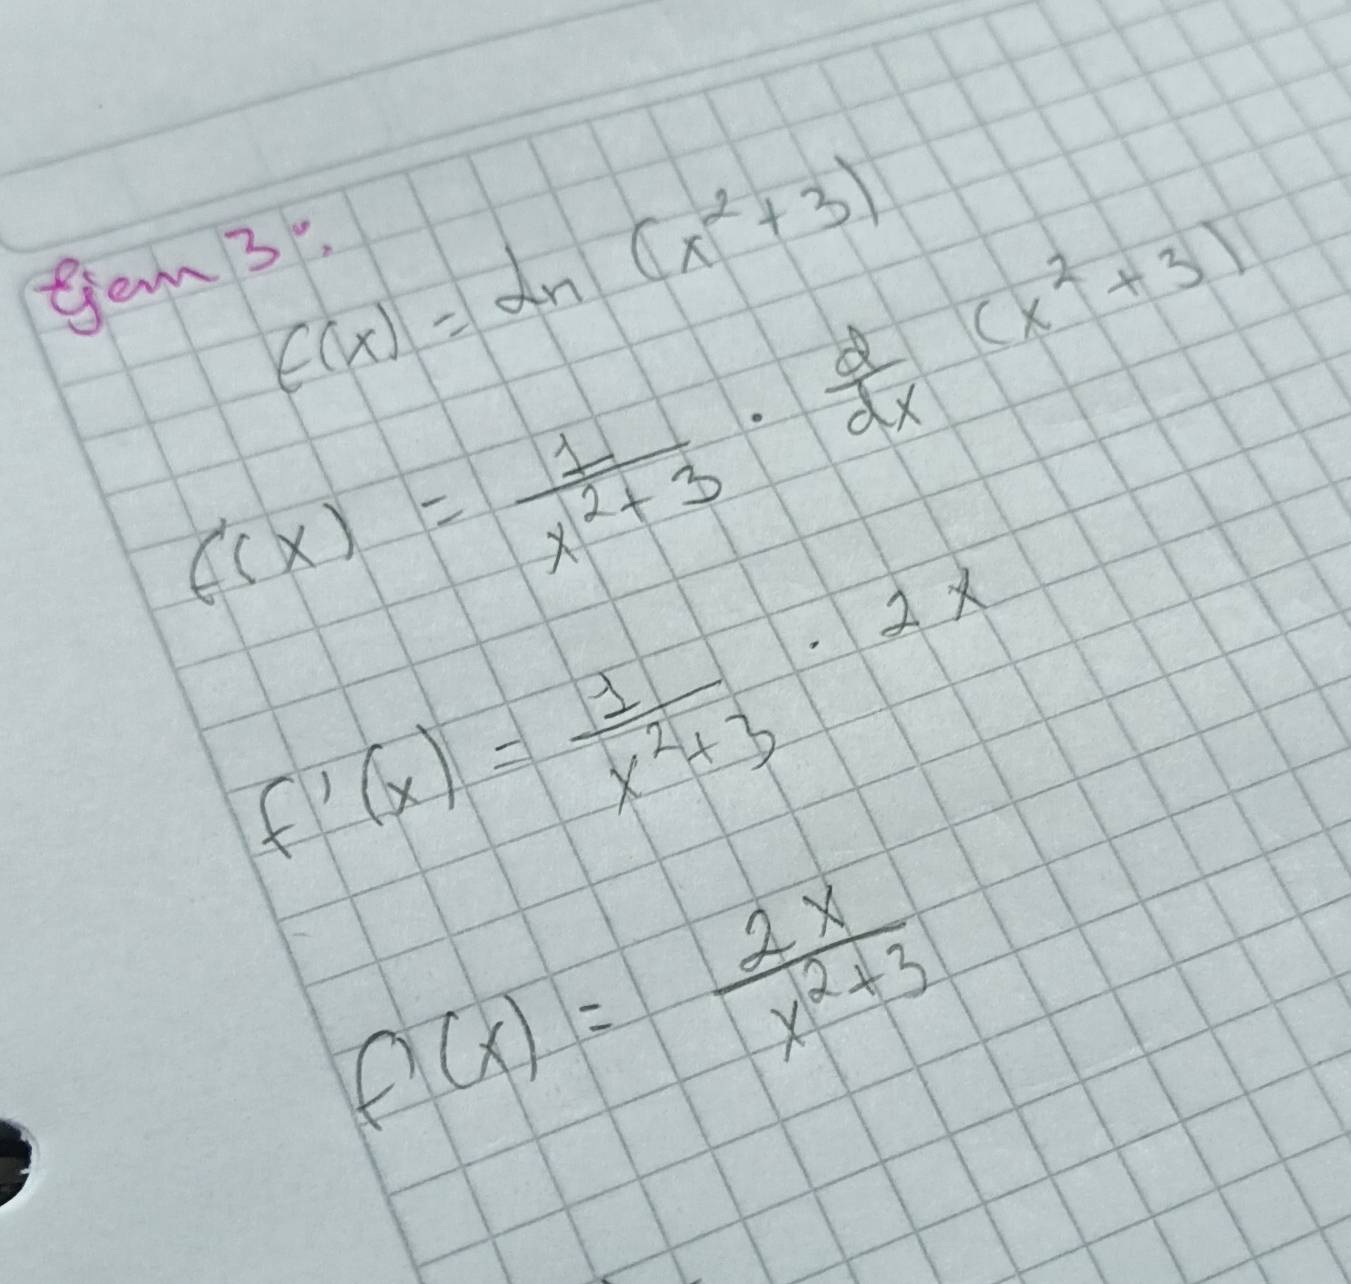 Ejem 3:
f(x) = Ln (x² + 3)
f'(x) = 1/(x² + 3) · d/dx (x² + 3)
f'(x) = 1/(x² + 3) · 2x
f'(x) = 2x/(x² + 3)